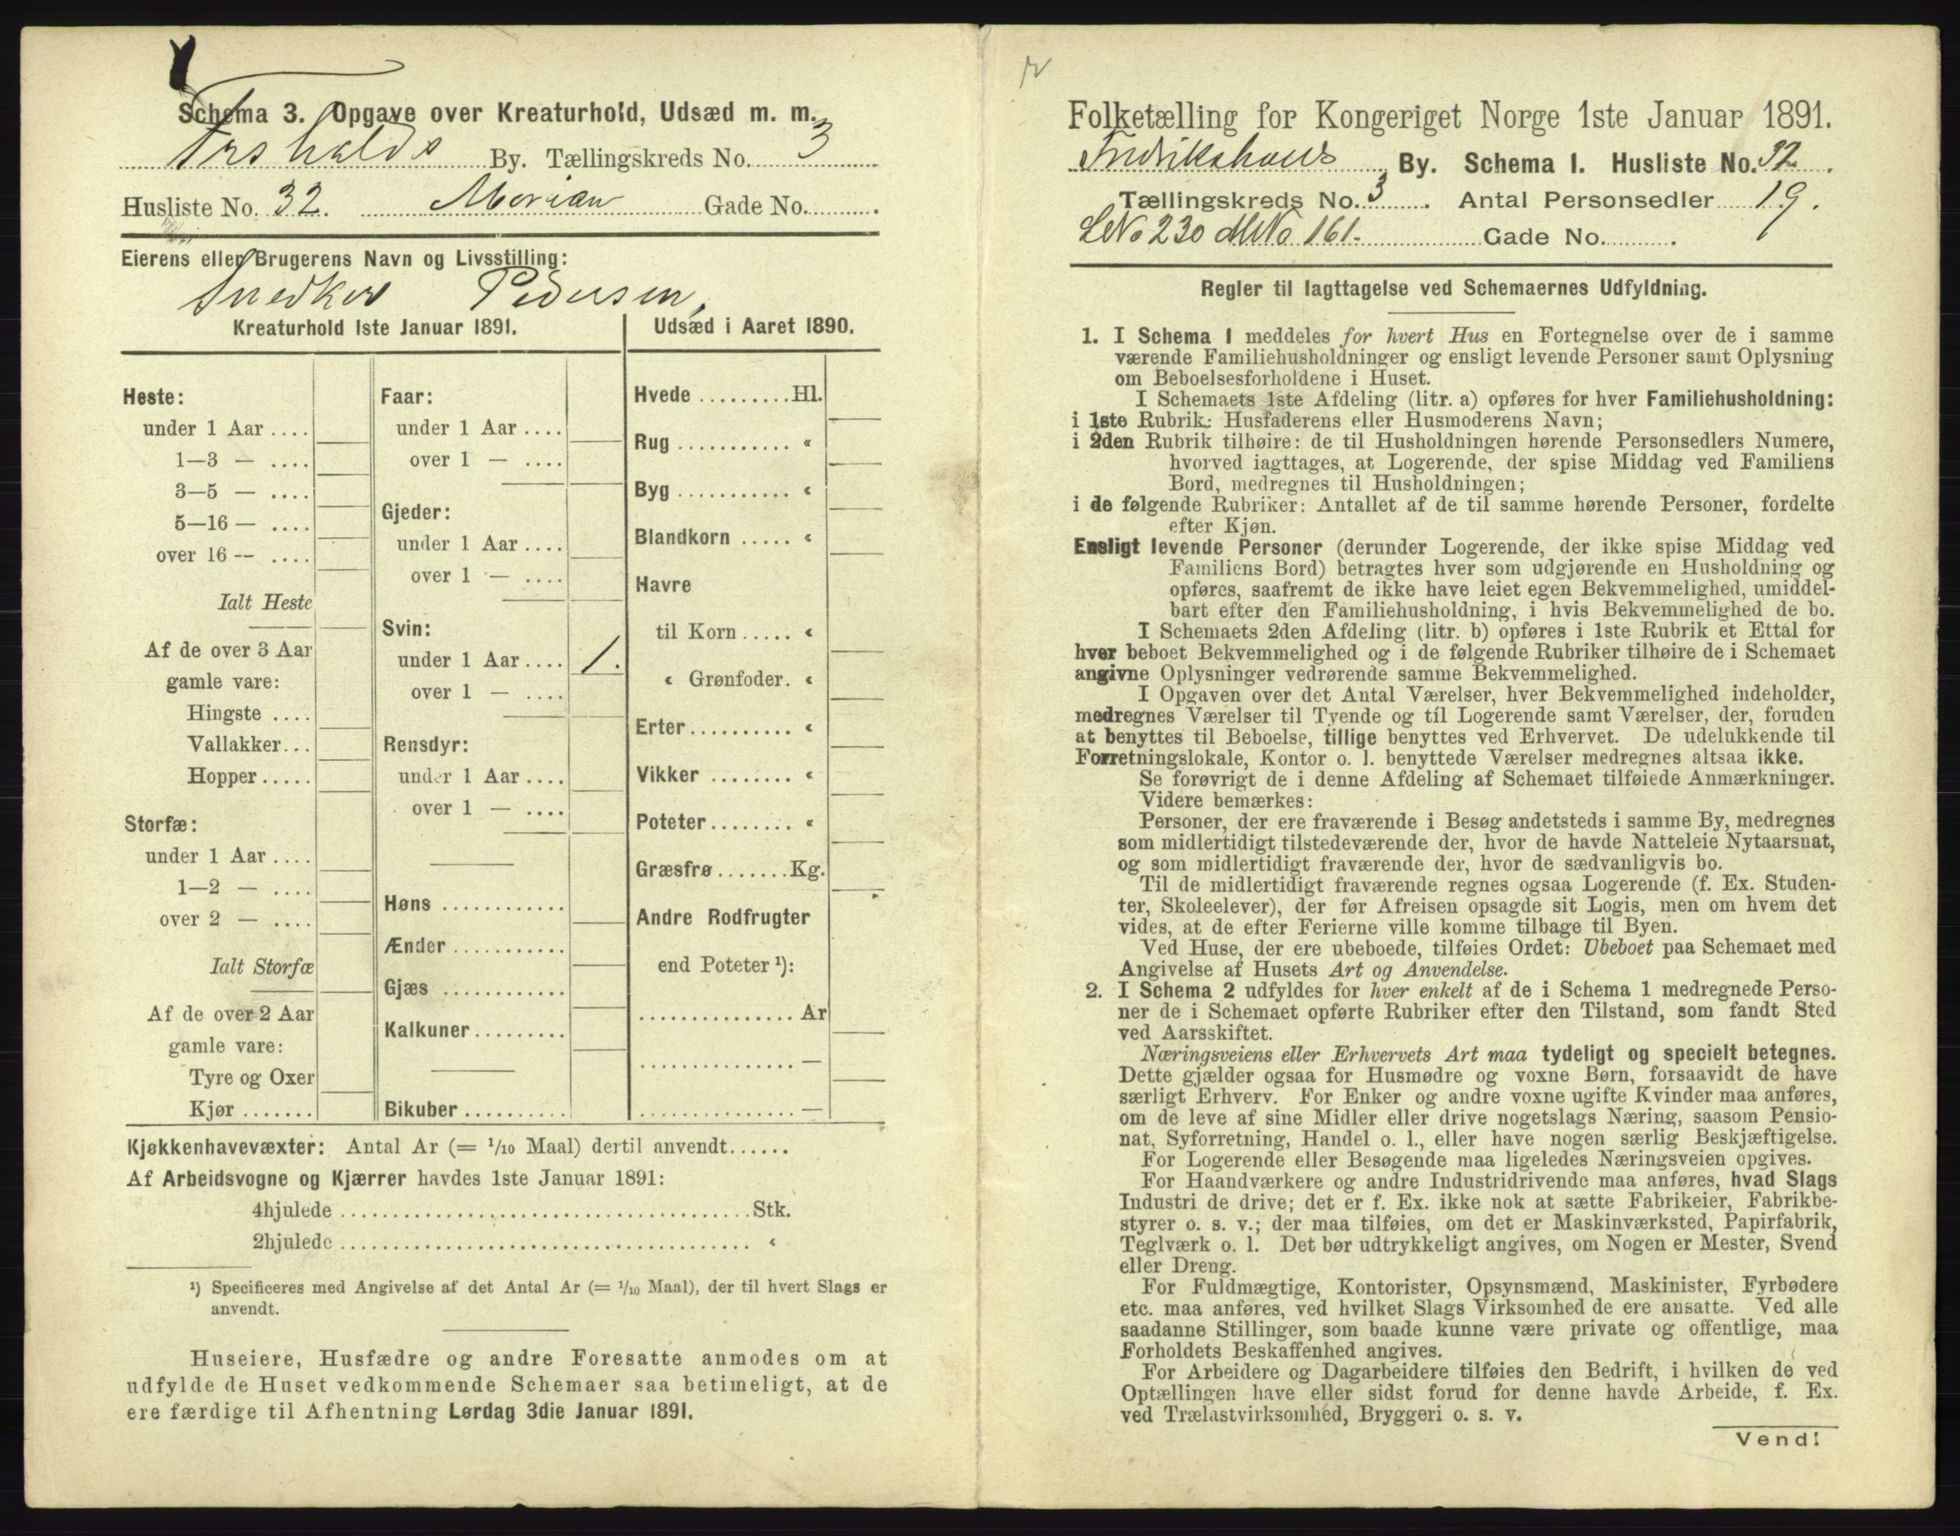 Schema 3. Opgave over Kreaturhold, Udsæd m. m.
Frshalds By. Tællingskreds No. 3
Husliste No. 32. Morian Gade No.
Eierens eller Brugerens Navn og Livsstilling:
Snedker Pedersen,
Kreaturhold 1ste Januar 1891.
Heste:
under 1 Aar ....
1—3 — ....
3—5 — ....
5—16 — ....
over 16 — ....
Ialt Heste
Af de over 3 Aar
gamle vare:
Hingste ....
Vallakker...
Hopper .....
Storfæ:
under 1 Aar ....
1—2 — ....
over 2 — ....
Ialt Storfæ
Af de over 2 Aar
gamle vare:
Tyre og Oxer
Kjør .......
Faar:
under 1 Aar ....
over 1 — ....
Gjeder:
under 1 Aar ....
over 1 — ....
Svin:
under 1 Aar .... 1.
over 1 — ....
Rensdyr:
under 1 Aar ....
over 1 — ....
Høns ............
Ænder ...........
Gjæs ............
Kalkuner .........
Bikuber ..........
Udsæd i Aaret 1890.
Hvede .........Hl.
Rug ........... «
Byg ........... «
Blandkorn ..... «
Havre
til Korn ..... «
« Grønfoder. «
Erter .......... «
Vikker ......... «
Poteter ........ «
Græsfrø .......Kg.
Andre Rodfrugter
end Poteter ¹):
............... Ar
............... —
............... —
Kjøkkenhavevæxter: Antal Ar (= 1/10 Maal) dertil anvendt......
Af Arbeidsvogne og Kjærrer havdes 1ste Januar 1891:
4hjulede ....................................... Stk.
2hjulede ....................................... «
¹) Specificeres med Angivelse af det Antal Ar (= 1/10 Maal), der til hvert Slags er
anvendt.
Huseiere, Husfædre og andre Foresatte anmodes om at
udfylde de Huset vedkommende Schemaer saa betimeligt, at de
ere færdige til Afhentning Lørdag 3die Januar 1891.
Folketælling for Kongeriget Norge 1ste Januar 1891.
Fredrikshalds By. Schema 1. Husliste No. 32.
Tællingskreds No. 3. Antal Personsedler 19.
LNo 230 MNo 161. Gade No. .
Regler til Iagttagelse ved Schemaernes Udfyldning.
1. I Schema 1 meddeles for hvert Hus en Fortegnelse over de i samme
værende Familiehusholdninger og ensligt levende Personer samt Oplysning
om Beboelsesforholdene i Huset.
I Schemaets 1ste Afdeling (litr. a) opføres for hver Familiehusholdning:
i 1ste Rubrik: Husfaderens eller Husmoderens Navn;
i 2den Rubrik tilhøire: de til Husholdningen hørende Personsedlers Numere,
hvorved iagttages, at Logerende, der spise Middag ved Familiens
Bord, medregnes til Husholdningen;
i de følgende Rubriker: Antallet af de til samme hørende Personer, fordelte
efter Kjøn.
Ensligt levende Personer (derunder Logerende, der ikke spise Middag ved
Familiens Bord) betragtes hver som udgjørende en Husholdning og
opføres, saafremt de ikke have leiet egen Bekvemmelighed, umiddel-
bart efter den Familiehusholdning, i hvis Bekvemmelighed de bo.
I Schemaets 2den Afdeling (litr. b) opføres i 1ste Rubrik et Ettal for
hver beboet Bekvemmelighed og i de følgende Rubriker tilhøire de i Schemaet
angivne Oplysninger vedrørende samme Bekvemmelighed.
I Opgaven over det Antal Værelser, hver Bekvemmelighed indeholder,
medregnes Værelser til Tyende og til Logerende samt Værelser, der, foruden
at benyttes til Beboelse, tillige benyttes ved Erhvervet. De udelukkende til
Forretningslokale, Kontor o. l. benyttede Værelser medregnes altsaa ikke.
Se forøvrigt de i denne Afdeling af Schemaet tilføiede Anmærkninger.
Videre bemærkes:
Personer, der ere fraværende i Besøg andetsteds i samme By, medregnes
som midlertidigt tilstedeværende der, hvor de havde Natteleie Nytaarsnat,
og som midlertidigt fraværende der, hvor de sædvanligvis bo.
Til de midlertidigt fraværende regnes ogsaa Logerende (f. Ex. Studen-
ter, Skoleelever), der før Afreisen opsagde sit Logis, men om hvem det
vides, at de efter Ferierne ville komme tilbage til Byen.
Ved Huse, der ere ubeboede, tilføies Ordet: Ubeboet paa Schemaet med
Angivelse af Husets Art og Anvendelse.
2. I Schema 2 udfyldes for hver enkelt af de i Schema 1 medregnede Perso-
ner de i Schemaet opførte Rubriker efter den Tilstand, som fandt Sted
ved Aarsskiftet.
Næringsveiens eller Erhvervets Art maa tydeligt og specielt betegnes.
Dette gjælder ogsaa for Husmødre og voxne Børn, forsaavidt de have
særligt Erhverv. For Enker og andre voxne ugifte Kvinder maa anføres,
om de leve af sine Midler eller drive nogetslags Næring, saasom Pensio-
nat, Syforretning, Handel o. l., eller have nogen særlig Beskjæftigelse.
For Logerende eller Besøgende maa ligeledes Næringsveien opgives.
For Haandværkere og andre Industridrivende maa anføres, hvad Slags
Industri de drive; det er f. Ex. ikke nok at sætte Fabrikeier, Fabrikbe-
styrer o. s. v.; der maa tilføies, om det er Maskinværksted, Papirfabrik,
Teglværk o. l. Det bør udtrykkeligt angives, om Nogen er Mester, Svend
eller Dreng.
For Fuldmægtige, Kontorister, Opsynsmænd, Maskinister, Fyrbødere
etc. maa anføres, ved hvilket Slags Virksomhed de ere ansatte. Ved alle
saadanne Stillinger, som baade kunne være private og offentlige, maa
Forholdets Beskaffenhed angives.
For Arbeidere og Dagarbeidere tilføies den Bedrift, i hvilken de ved
Optællingen have eller sidst forud for denne havde Arbeide, f. Ex.
ved Trælastvirksomhed, Bryggeri o. s. v.
Vend!